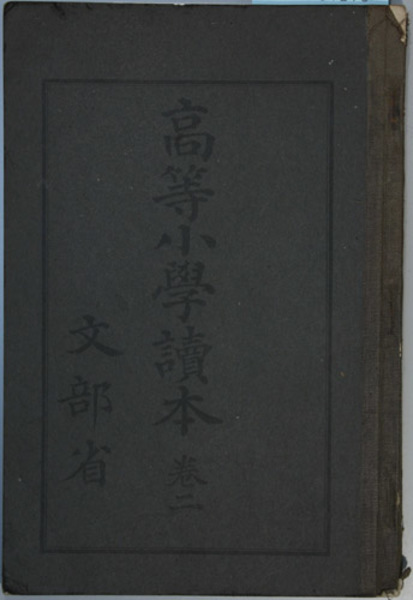 高等小學讀本 卷二
文部省